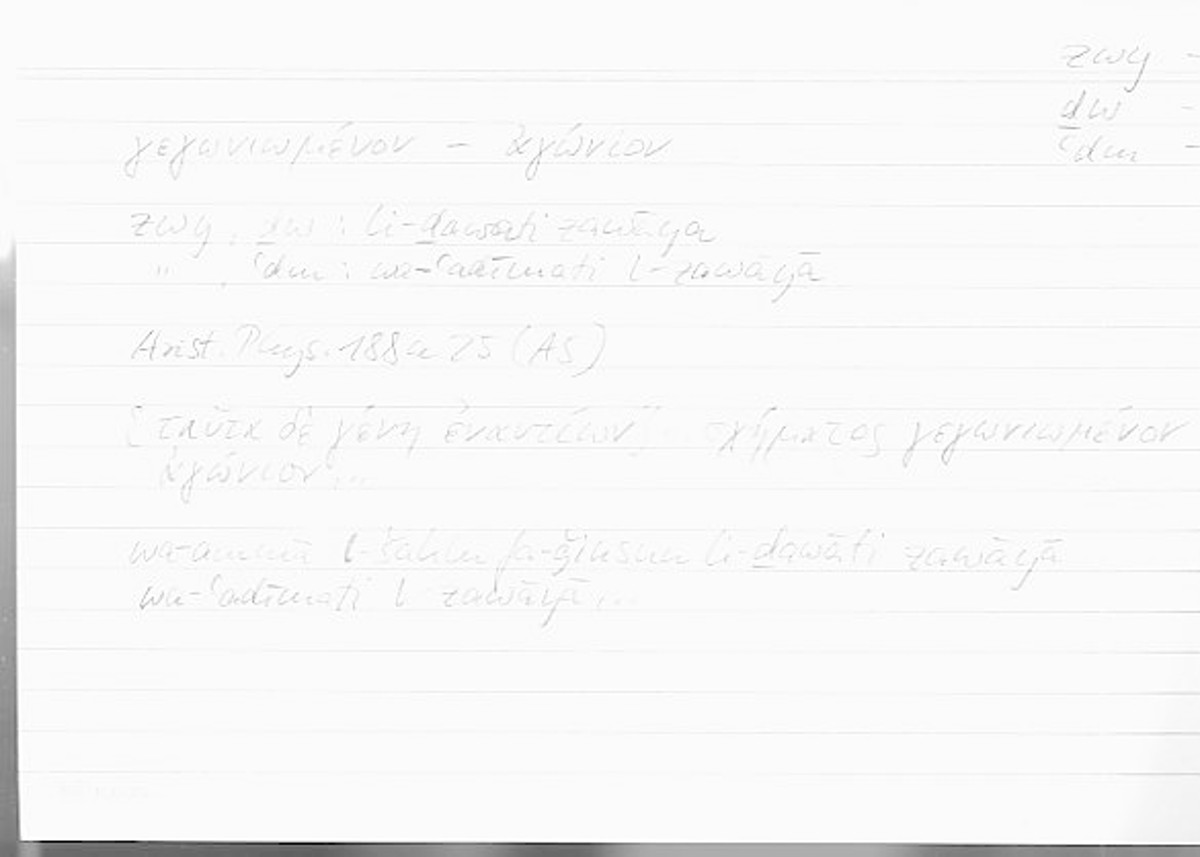 zwy –
ḏw –
ʿdm –
γεγωνιωμένον – ἀγώνιον
zwy, ḏw : li-ḏawāti zawāyā
" , ʿdm : wa-ʿadīmati l-zawāyā
Arist. Phys. 188a25 (AS)
[ταῦτα δὲ γένη ἐναντίων] σχήματος γεγωνιωμένον
ἀγώνιον ...
wa-ammā l-šaklu fa-ǧinsun li-ḏawāti zawāyā
wa-ʿadīmati l zawāyā ...